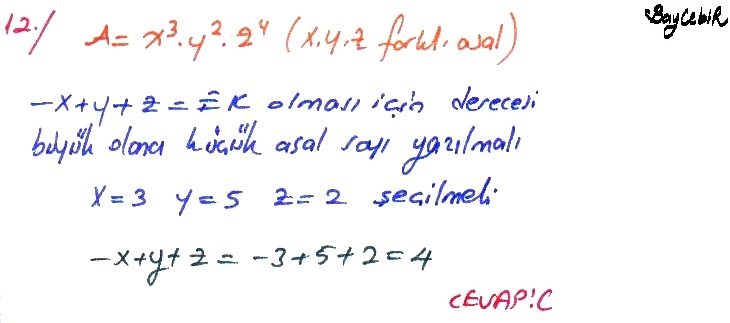 12./ A = x³.y².z⁴ (x.y.z farklı asal)
BayCebiR
-x+y+z = EK olması için derecesi
büyük olana küçük asal sayı yazılmalı
x=3 y=5 z=2 seçilmeli
-x+y+z = -3+5+2=4
CEVAP:C